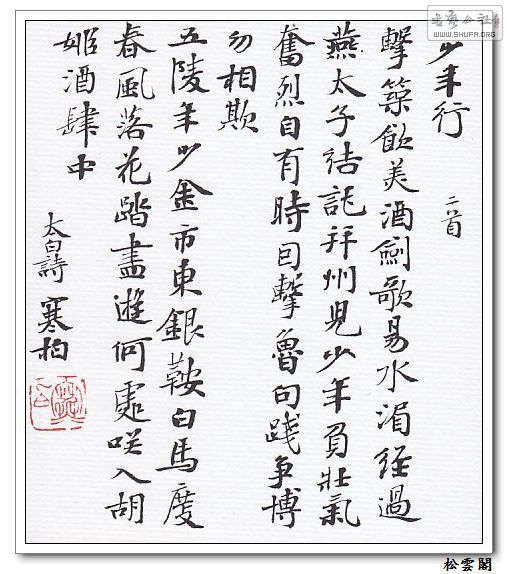 少年行 二首
擊築飲美酒劍歌易水湄經過
燕太子結託并州兒少年負壯氣
奮烈自有時因擊魯句踐爭博
勿相欺
五陵年少金市東銀鞍白馬度
春風落花踏盡遊何處咲入胡
姬酒肆中
太白詩 寒柏
松雲閣
WWW.SHUFA.ORG